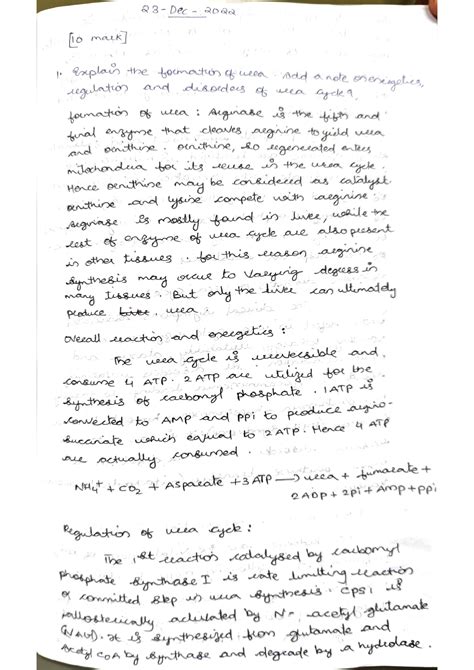 23-Dec-2022
[10 mark]
1. Explain the formation of urea. Add a note on energetics,
regulation and disorders of urea cycle?
formation of urea : Arginase is the fifth and
final enzyme that cleaves arginine to yield urea
and ornithine. ornithine, so regenerated enters
mitochondria for its reuse in the urea cycle.
Hence ornithine may be considered as catalyst.
ornithine and lysine compete with arginine.
Arginase is mostly found in liver, while the
rest of enzyme of urea cycle are also present
in other tissues. for this reason arginine
synthesis may occur to varying degrees in
many tissues. But only the liver can ultimately
produce urea.
Overall reaction and energetics :
The urea cycle is irreversible and
consume 4 ATP. 2 ATP are utilized for the
synthesis of carbomyl phosphate. 1 ATP is
converted to AMP and PPi to produce argino-
succinate which equal to 2 ATP. Hence 4 ATP
are actually consumed.
NH4+ + CO2 + Aspartate + 3 ATP → urea + fumarate +
2 ADP + 2 pi + Amp + ppi
Regulation of urea cycle :
The 1st reaction catalysed by carbomyl
phosphate synthase I is rate limiting reaction
or committed step in urea synthesis. CPS I is
allosterically activated by N- acetyl glutamate
(NAG). It is synthesized from glutamate and
Acetyl CoA by synthase and degrade by a hydrolase.